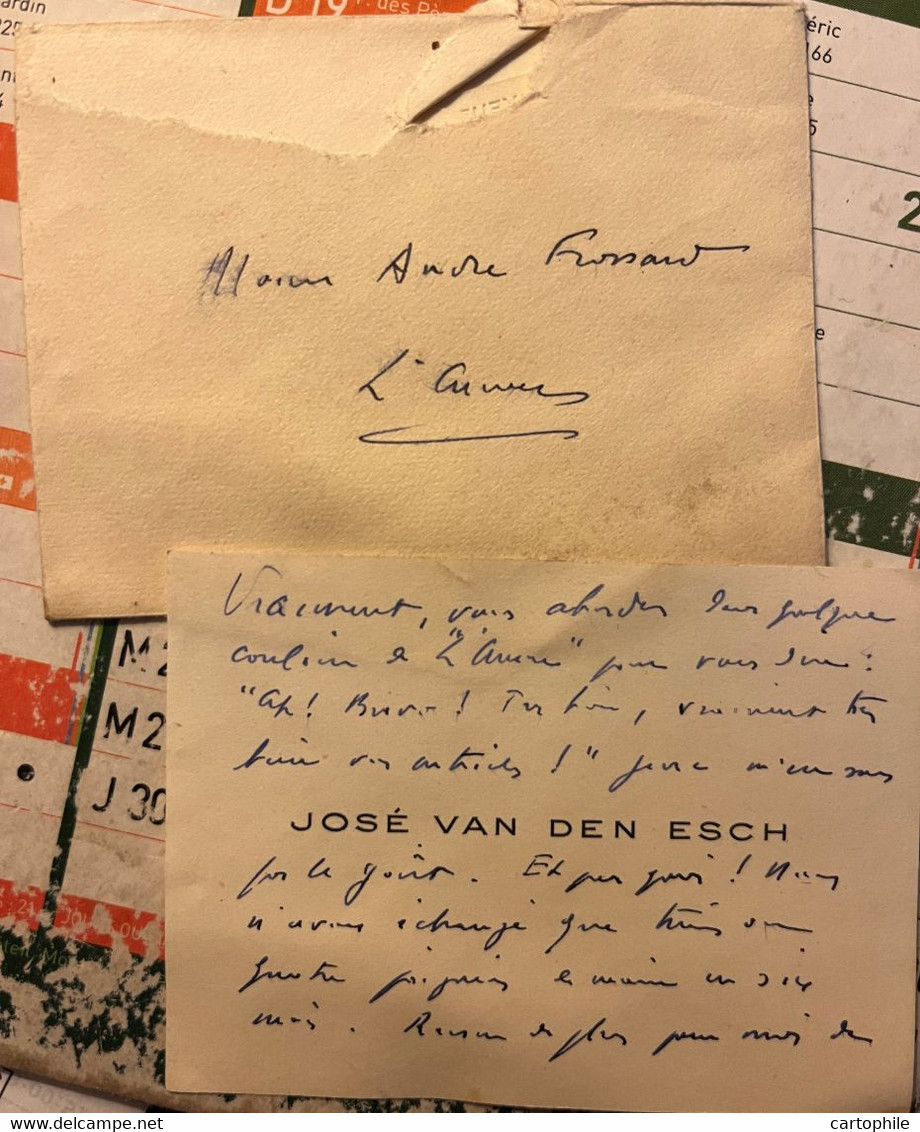 D 19 des Pè
ardin
25
éric
166
5
2
e
André Frossard
L'Aurore
Vraiment, vous aborder dans quelque
couloir de "L'Aurore" pour vous dire :
"Ah! Bravo! Très bien, vraiment très
bien vos articles!" je ne m'en sens
JOSÉ VAN DEN ESCH
pas le goût. Et puis quoi! Nous
n'avons échangé que trois ou
quatre poignées de main en six
mois. Raison de plus pour moi de
M 2
M 2
J 30
cartophile